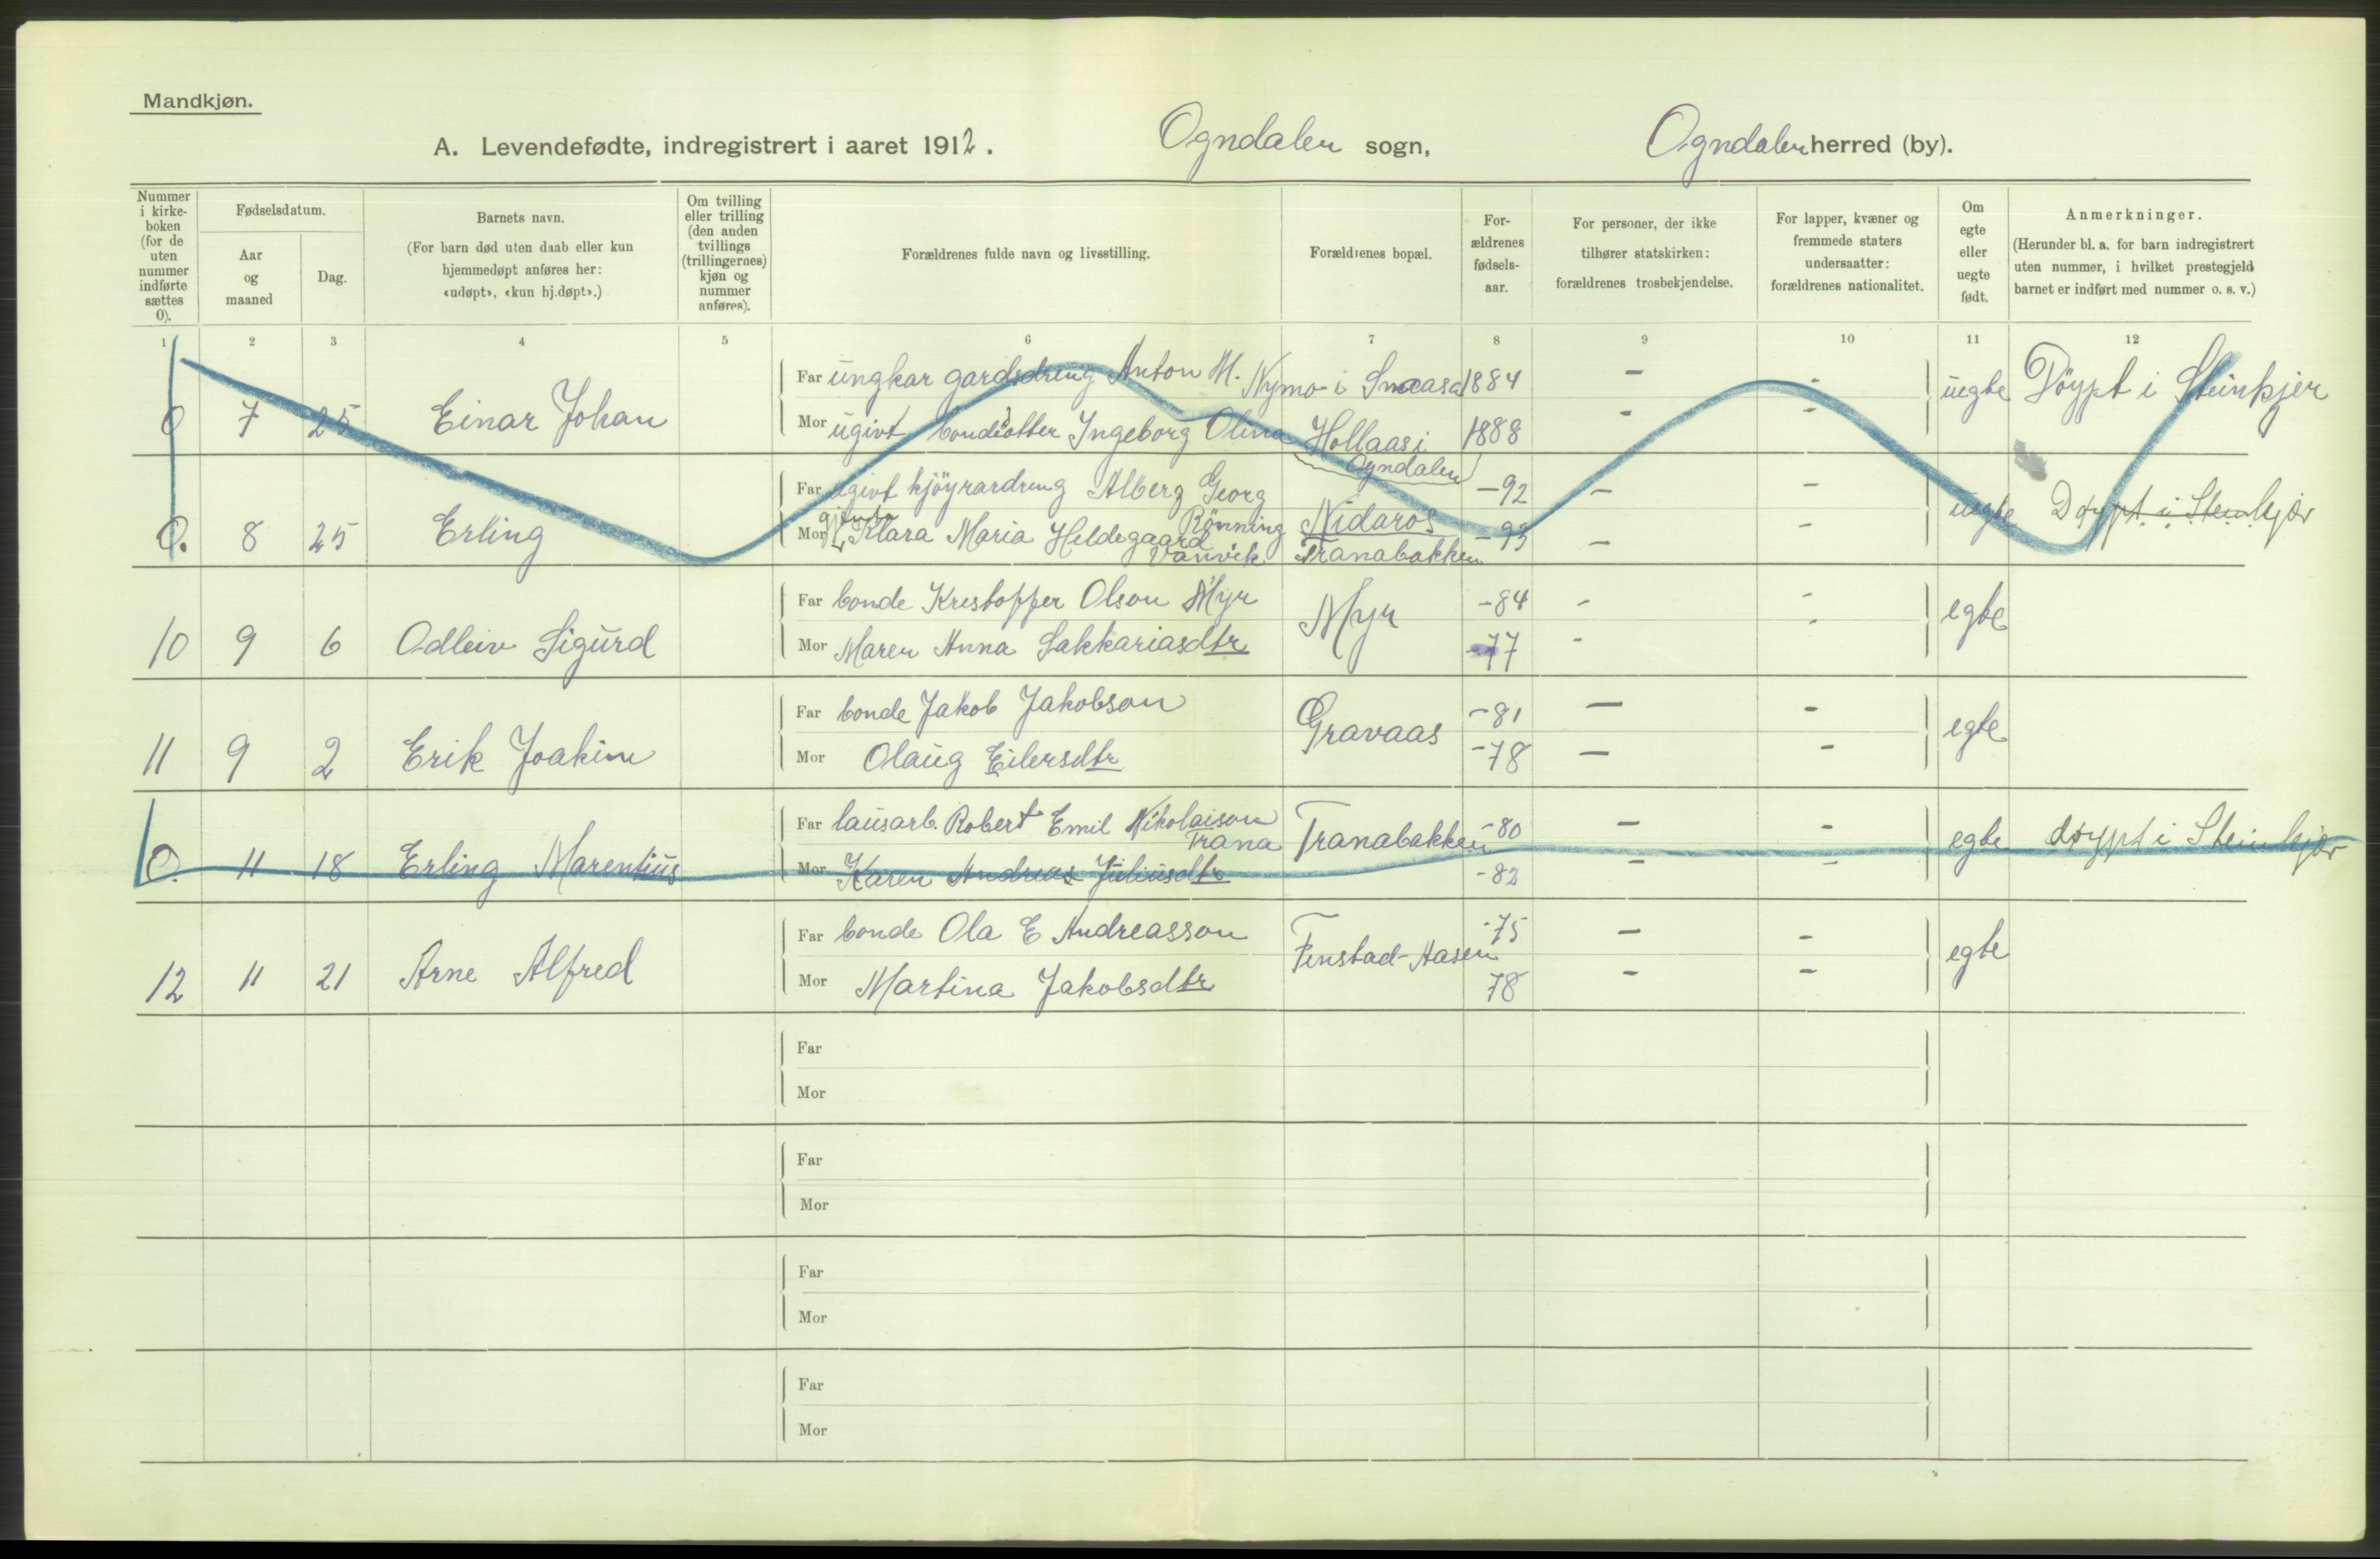 Mandkjøn.
A. Levendefødte, indregistrert i aaret 1912. Ogndalen sogn, Ogndalen herred (by).
Nummer i kirke-boken (for de uten nummer indførte sættes 0).
Fødselsdatum.
Aar og maaned
Dag.
Barnets navn.
(For barn død uten daab eller kun hjemmedøpt anføres her: «udøpt», «kun hj.døpt».)
Om tvilling eller trilling (den anden tvillings (trillingernes) kjøn og nummer anføres).
Forældrenes fulde navn og livsstilling.
Forældrenes bopæl.
For-ældrenes fødsels-aar.
For personer, der ikke tilhører statskirken: forældrenes trosbekjendelse.
For lapper, kvæner og fremmede staters undersaatter: forældrenes nationalitet.
Om egte eller uegte født.
Anmerkninger.
(Herunder bl. a. for barn indregistrert uten nummer, i hvilket prestegjeld barnet er indført med nummer o. s. v.)
1 2 3 4 5 6 7 8 9 10 11 12
Far ungkar gardsdreng Anton M. Nymo i Snaasa 1884 - -
0 7 25 Einar Johan uegte Döypt i Steinkjer
Mor ugivt bondedotter Ingeborg Olina Hollaas i Ogndalen 1888 - -
Far ugivt kjöyrardreng Alberg Georg Rönning Nidaros -92 - -
0. 8 25 Erling uegte Døypt i Steinkjær
Mor gjenta Klara Maria Heldegaard Vanvik Tranabakken -93 - -
Far bonde Kristoffer Olson Myr -84 - -
10 9 6 Odleiv Sigurd Myr egte
Mor Maren Anna Sakkariasdtr -77 - -
Far bonde Jakob Jakobson -81 - -
11 9 2 Erik Joakim Gravaas egte
Mor Olaug Eilersdtr -78 - -
Far lausarb. Robert Emil Nikolaison Trana Tranabakken -80 - -
0. 11 18 Erling Marentius egte døypt i Steinkjær
Mor Karen Andreas Juliusdtr -82 - -
Far bonde Ola E Andreasson -75 - -
12 11 21 Arne Alfred Fenstad-Aasen egte
Mor Martina Jakobsdtr 78 - -
Far
Mor
Far
Mor
Far
Mor
Far
Mor